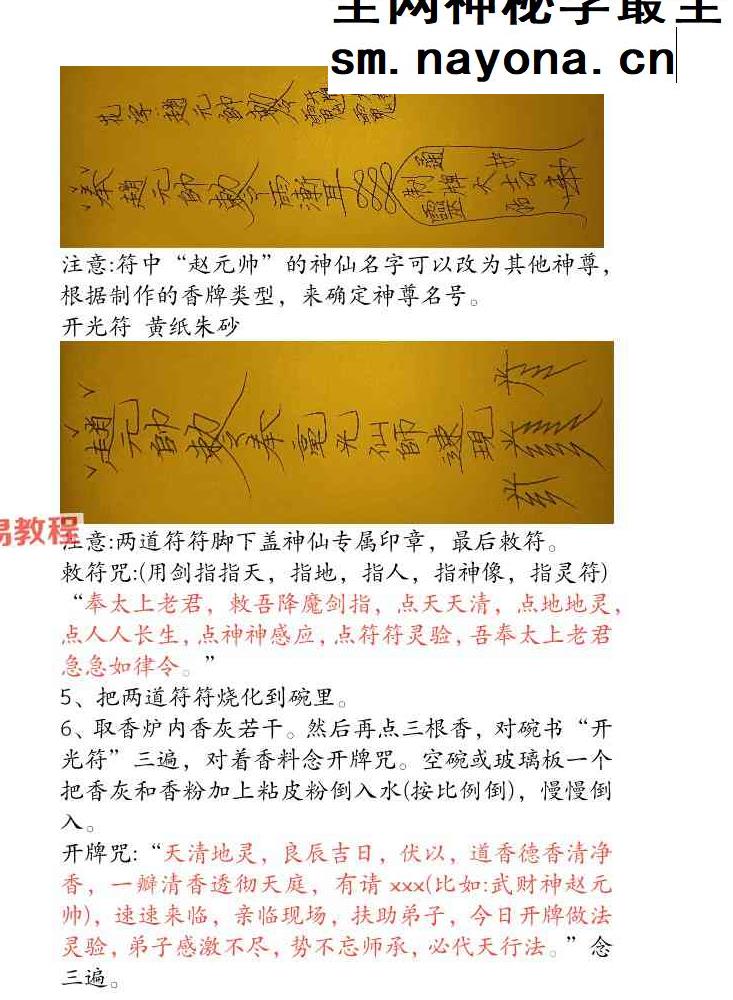 全网神秘学最全
sm.nayona.cn
趙元帥敕令
奉趙元帥敕令
注意:符中“赵元帅”的神仙名字可以改为其他神尊，
根据制作的香牌类型，来确定神尊名号。
开光符 黄纸朱砂
趙元帥敕令奉毫光仙師速現
易教程
注意:两道符符脚下盖神仙专属印章，最后敕符。
敕符咒:(用剑指指天，指地，指人，指神像，指灵符)
“奉太上老君，敕吾降魔剑指，点天天清，点地地灵，
点人人长生，点神神感应，点符符灵验，吾奉太上老君
急急如律令。”
5、把两道符符烧化到碗里。
6、取香炉内香灰若干。然后再点三根香，对碗书“开
光符”三遍，对着香料念开牌咒。空碗或玻璃板一个
把香灰和香粉加上粘皮粉倒入水(按比例倒)，慢慢倒
入。
开牌咒:“天清地灵，良辰吉日，伏以，道香德香清净
香，一瓣清香透彻天庭，有请 xxx(比如:武财神赵元
帅)，速速来临，亲临现场，扶助弟子，今日开牌做法
灵验，弟子感激不尽，势不忘师承，必代天行法。”念
三遍。